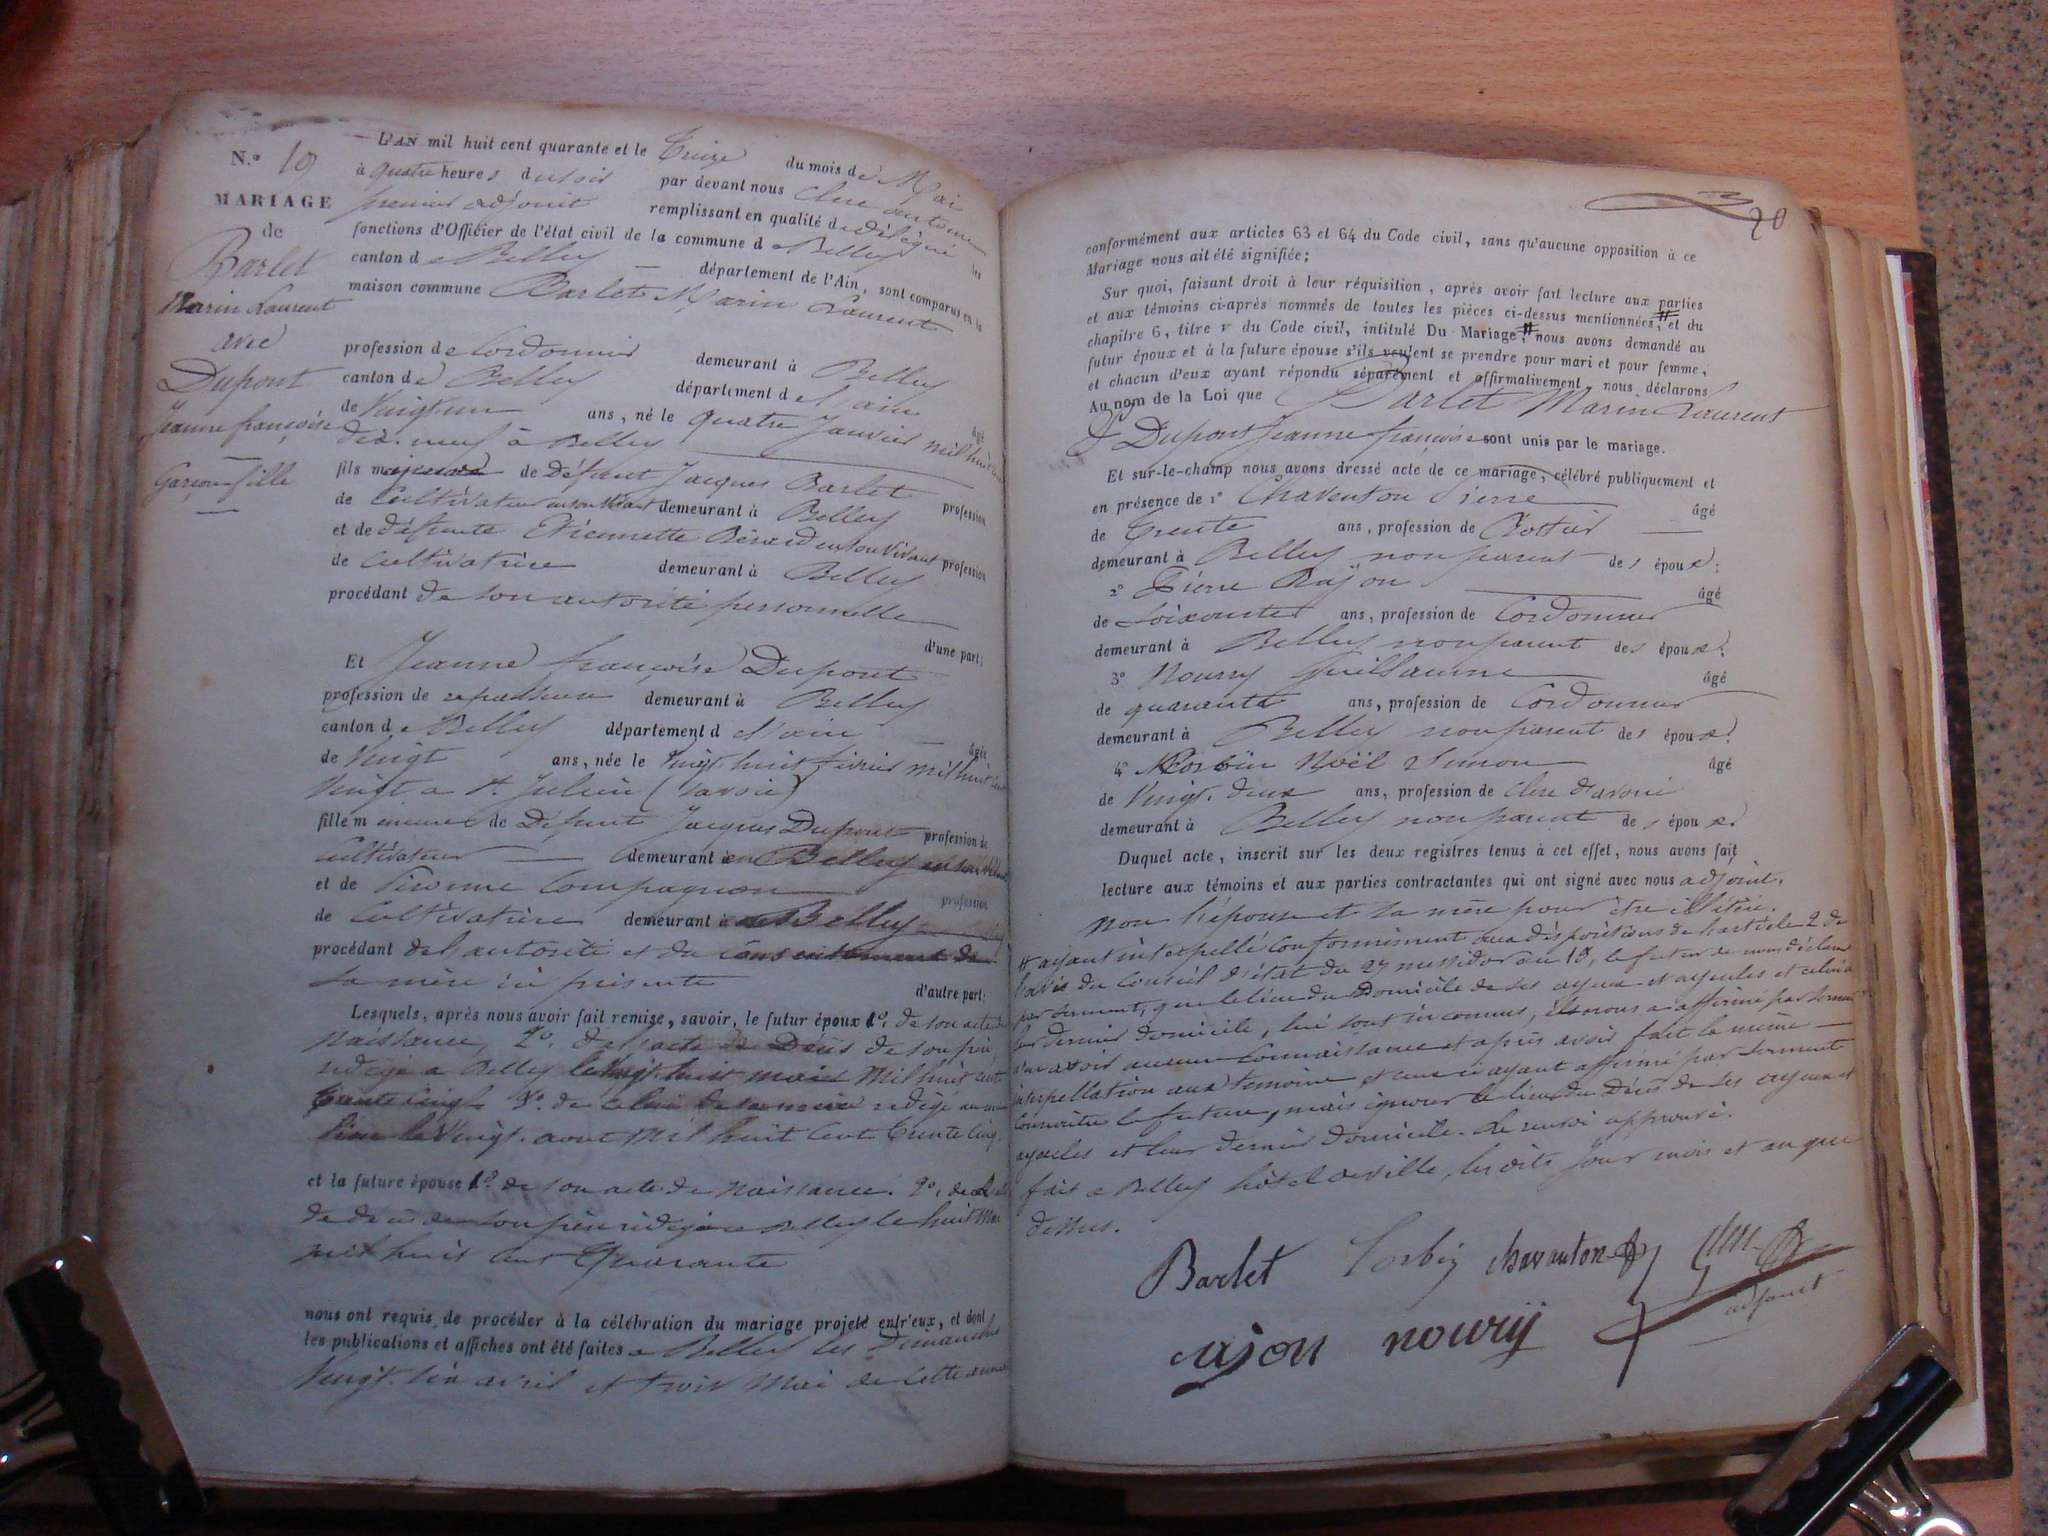 N.º 19
MARIAGE
de
Barlet
Marin Laurent
avec
Dupont
Jeanne françoise
Garçon fille
L'AN mil huit cent quarante et le treize du mois de Mai
à quatre heures du soir par devant nous Clerc antoine
premier adjoint remplissant en qualité de délégué les
fonctions d'Officier de l'état civil de la commune de Belley
canton de Belley département de l'Ain, sont comparus en la
maison commune Barlet Marin Laurent
profession de Cordonnier demeurant à Belley
canton de Belley département de l'ain âgé
de Vingt un ans, né le quatre Janvier mil huit cent
dix-neuf à Belley
fils majeur de Défunt Jacques Barlet profession
de Cultivateur en son vivant demeurant à Belley
et de défunte Etiennette Bérard en son Vivant profession
de cultivatrice demeurant à Belley
procédant de son autorité personnelle
d'une part;
Et Jeanne françoise Dupont
profession de repasseuse demeurant à Belley
canton de Belley département de l'ain âgée
de Vingt ans, née le Vingt huit février mil huit cent
Vingt a St Julien (Savoie)
fille mineure de Défunt Jacques Dupont profession de
Cultivateur demeurant à Belley en son vivant
et de Pierrone Compagnon profession
de Cultivatrice demeurant à Belley
procédant de l'autorité et du consentement de
sa mère ici présente
d'autre part;
Lesquels, après nous avoir fait remise, savoir, le futur époux 1º. de son acte de
Naissance, 2º. de l'acte de Décès de son père,
rédigé a Belley le Vingt huit mars Mil huit cent
trente cinq 3º. de celui de sa mère rédigé au même
lieu le Vingt. aout Mil huit Cent trente cinq
et la future épouse 1º. de son acte de Naissance. 2º. de celui
de décès de son père rédigé a Belley le huit Mai
mil huit cent Quarante
nous ont requis de procéder à la célébration du mariage projeté entr'eux, et dont
les publications et affiches ont été faites a Belley les Dimanches
Vingt. six avril et trois Mai de cette année
20
conformément aux articles 63 et 64 du Code civil, sans qu'aucune opposition à ce
Mariage nous ait été signifiée;
Sur quoi, faisant droit à leur réquisition, après avoir fait lecture aux parties
et aux témoins ci-après nommés de toutes les pièces ci-dessus mentionnées, # et du
chapitre 6, titre v du Code civil, intitulé Du Mariage, # nous avons demandé au
futur époux et à la future épouse s'ils veulent se prendre pour mari et pour femme,
et chacun d'eux ayant répondu séparément et affirmativement, nous déclarons
Au nom de la Loi que Barlet Marin Laurent
& Dupont Jeanne françoise sont unis par le mariage.
Et sur-le-champ nous avons dressé acte de ce mariage, célébré publiquement et
en présence de 1º Chavanton Pierre âgé
de trente ans, profession de Bottier
demeurant à Belley non parent des époux:
2º Pierre Rajon âgé
de soixante ans, profession de Cordonnier
demeurant à Belley non parent des époux:
3º Nourry Guillaume âgé
de quarante ans, profession de Cordonnier
demeurant à Belley non parent des époux:
4º Corbin Noël Simon âgé
de Vingt. deux ans, profession de Clerc d'avoué
demeurant à Belley non parent des époux
Duquel acte, inscrit sur les deux registres tenus à cet effet, nous avons fait
lecture aux témoins et aux parties contractantes qui ont signé avec nous adjoint,
Non l'épouse et sa mère pour être illitérées.
# ayant interpellé conformément aux dispositions de l'article 2 de
l'avis du Conseil d'état du 27 messidor an 13, le futur de nous déclarer
par serment, que le lieu du Domicile de ses ayeux et ayeules et celui de
leur dernier domicile, lui sont inconnus, il nous a affirmé par serment
n'en avoir aucune connaissance et après avoir fait la même
interpellation aux temoins et ceux ci ayant affirmé par serment
Connoitre le futur, mais ignorer le lieu du Décès de ses ayeux et
ayeules et leur dernier domicile. Le renvoi approuvé.
fait a Belley hôtel de ville, les dits Jour mois et an que
dessus.
Barlet Corbin chavanton
adjoint
rajon noury